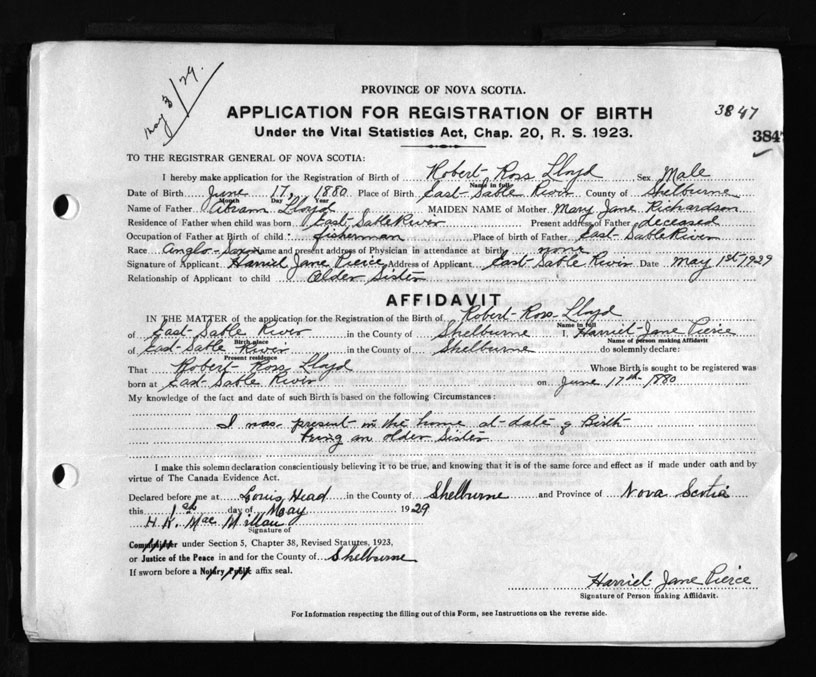 May 3/29.
PROVINCE OF NOVA SCOTIA.
APPLICATION FOR REGISTRATION OF BIRTH 3847
Under the Vital Statistics Act, Chap. 20, R. S. 1923. 384
TO THE REGISTRAR GENERAL OF NOVA SCOTIA:
I hereby make application for the Registration of Birth of Robert Ross Lloyd Sex Male
Name in full
Date of Birth June 17, 1880 Place of Birth East Sable River County of Shelburne
Month Day Year
Name of Father Abram Lloyd MAIDEN NAME of Mother Mary Jane Richardson
Residence of Father when child was born East Sable River Present address of Father deceased
Occupation of Father at Birth of child fisherman Place of birth of Father East Sable River
Race Anglo-Saxon Name and present address of Physician in attendance at birth none
Signature of Applicant Harriet Jane Pierce Address of Applicant East Sable River Date May 1st 1929
Relationship of Applicant to child Older Sister
AFFIDAVIT
IN THE MATTER of the application for the Registration of the Birth of Robert Ross Lloyd
Name in full
of East Sable River in the County of Shelburne I, Harriet Jane Pierce
Birth place Name of person making Affidavit
of East Sable River in the County of Shelburne do solemnly declare:
Present residence
That Robert Ross Lloyd Whose Birth is sought to be registered was
born at East Sable River on June 17th 1880
My knowledge of the fact and date of such Birth is based on the following Circumstances:
I was present in the home at date of Birth
being an older Sister
I make this solemn declaration conscientiously believing it to be true, and knowing that it is of the same force and effect as if made under oath and by
virtue of The Canada Evidence Act.
Declared before me at Louis Head in the County of Shelburne and Province of Nova Scotia
this 1st day of May 1929
H. K. Mac Millan
Signature of
Commissioner under Section 5, Chapter 38, Revised Statutes, 1923,
or Justice of the Peace in and for the County of Shelburne
If sworn before a Notary Public affix seal.
Harriet Jane Pierce
Signature of Person making Affidavit.
For Information respecting the filling out of this Form, see Instructions on the reverse side.